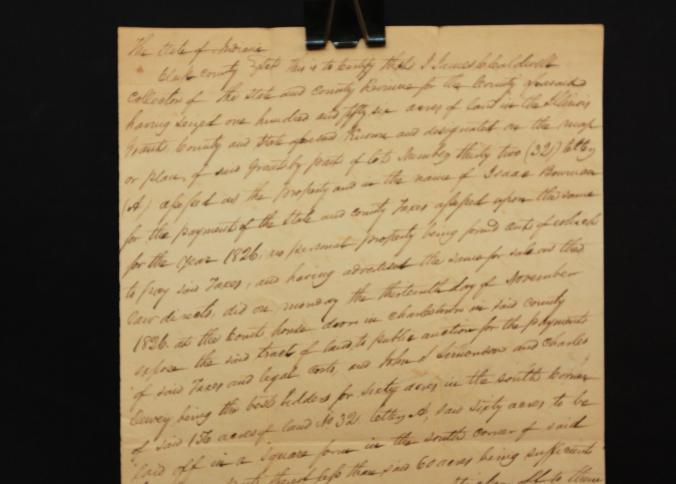 The State of Indiana
Clark County Sct This is to Certify that I James Caldwell
Collector of the State and County Revenue for the County aforesaid
having seized one hundred and fifty six acres of land in the Illinois
Grant County and State aforesaid Known and designated on the map
or plan of said Grant by part of lots Number thirty two (32) letter
(A) assessed as the property and in the name of Isaac Bowman
for the payment of the State and County Taxes assessed upon the same
for the year 1826, no personal property being found out of which
to pay said Taxes, and having advertised the same for sale as the
law directs, did on monday the thirteenth day of November
1826 at the Court house door in charlestown in said County
expose the said tract of land to public auction for the payment
of said Taxes and legal costs, and John S Simonson and Charles
Dewey being the best bidders for sixty acres in the south Corner
of said 156 acres of land No 32 letter A, said sixty acres to be
laid off in a square form in the south corner of said
less than said 60 acres being sufficient
to them